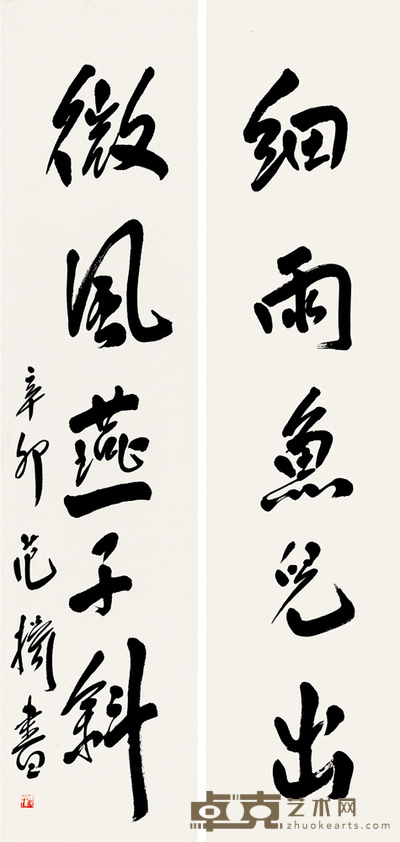 细雨鱼兒出
微風燕子斜
辛卯 范
書
卓克艺术网
zhuokearts.com